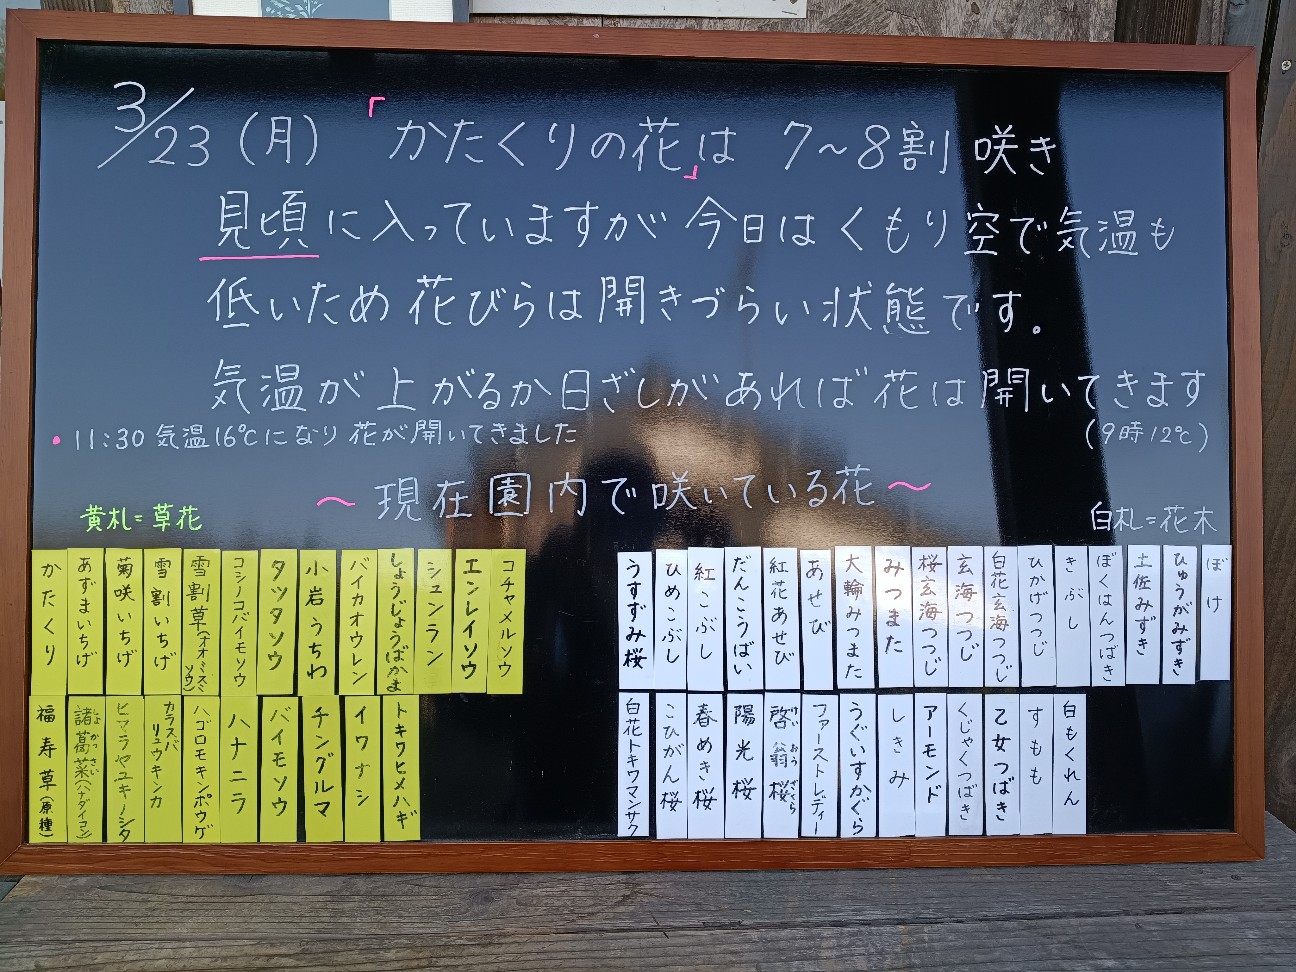 3/23(月) 「かたくりの花」は 7〜8割 咲き
見頃に入っていますが 今日は くもり空で気温も
低いため 花びらは開きづらい状態です。
気温が上がるか日ざしがあれば花は開いてきます
・11:30 気温16℃になり 花が開いてきました
(9時12℃)
〜現在園内で咲いている花〜
黄札=草花
白札=花木
かたくり
あずまいちげ
菊咲いちげ
雪割いちげ
雪割草(オオミスミソウ)
コシノコバイモソウ
タツタソウ
小岩うちわ
バイカオウレン
しょうじょうばかま
シュンラン
エンレイソウ
コチャメルソウ
福寿草(原種)
諸葛菜(ハナダイコン)
しょかっさい
ヒマラヤユキノシタ
カラスバリュウキンカ
ハゴロモキンポウゲ
ハナニラ
バイモソウ
チングルマ
イワナシ
トキワヒメハギ
うすずみ桜
ひめこぶし
紅こぶし
だんこうばい
紅花あせび
あせび
大輪みつまた
みつまた
桜玄海つつじ
玄海つつじ
白花玄海つつじ
ひかげつつじ
きぶし
ぼくはんつばき
土佐みずき
ひゅうがみずき
ぼけ
白花トキワマンサク
こひがん桜
春めき桜
陽光桜
啓翁桜
けいおうざくら
ファーストレディー
うぐいすかぐら
しきみ
アーモンド
くじゃくつばき
乙女つばき
すもも
白もくれん